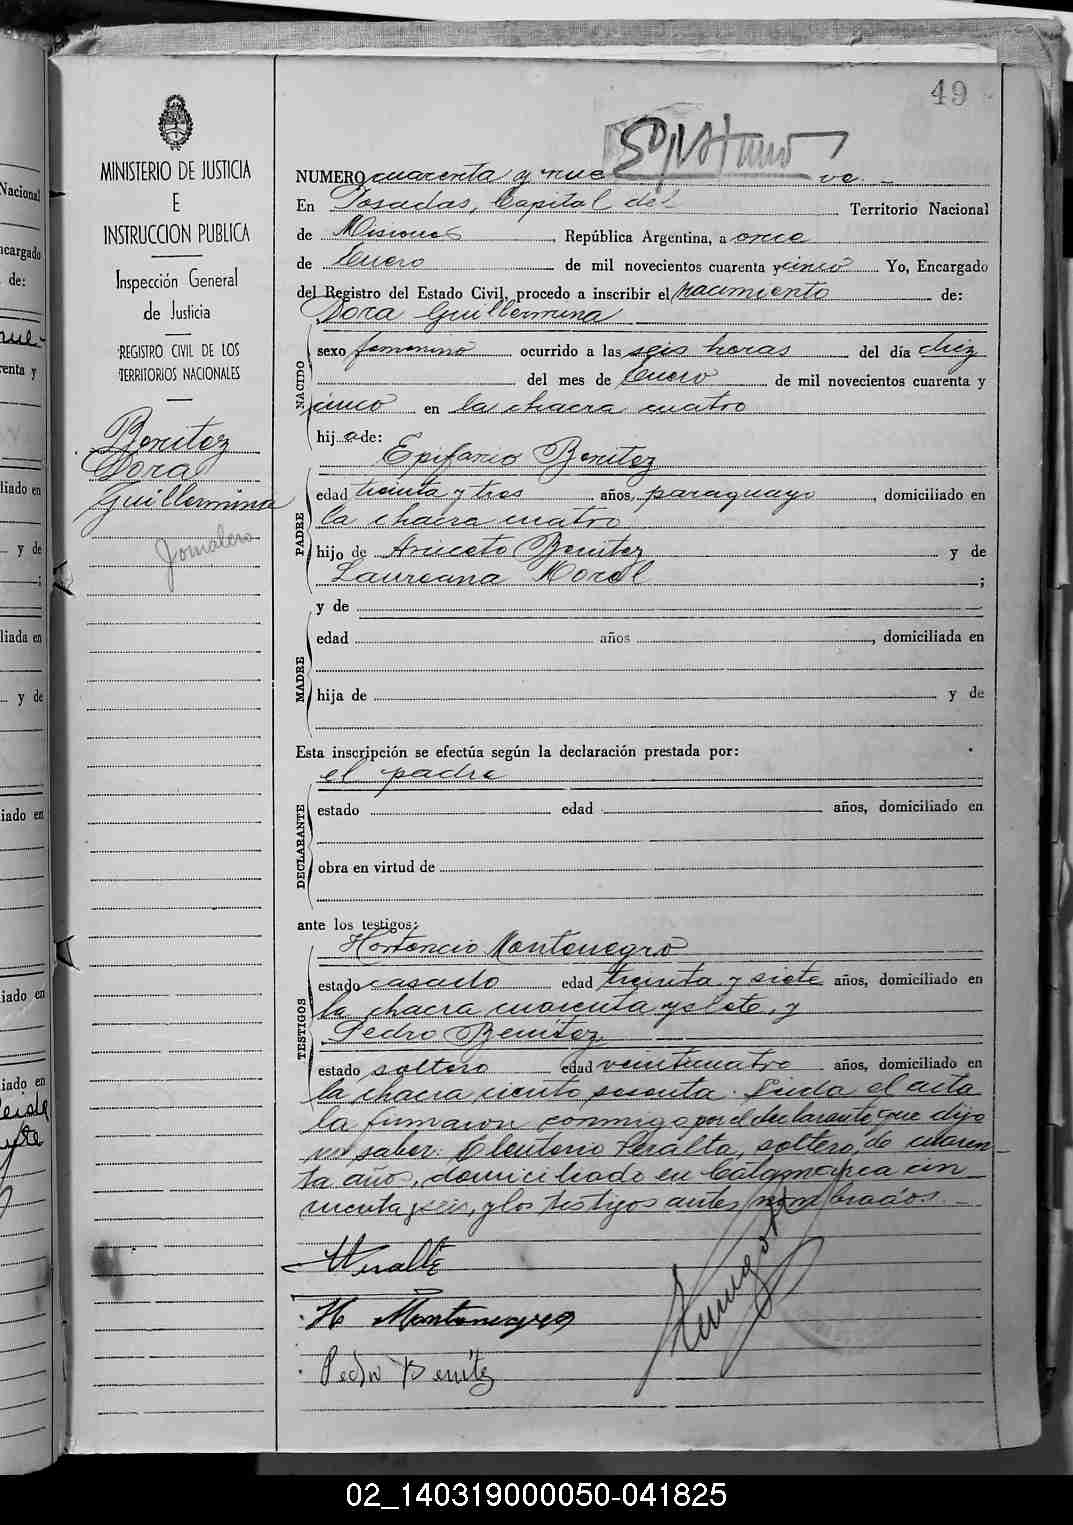 49
MINISTERIO DE JUSTICIA
E
INSTRUCCION PUBLICA
Inspección General
de Justicia
REGISTRO CIVIL DE LOS
TERRITORIOS NACIONALES
Benitez
Dora
Guillermina
Jornalero
NUMERO cuarenta y nue ve.
En Posadas, Capital del Territorio Nacional
de Misiones, República Argentina, a once
de Enero de mil novecientos cuarenta y cinco Yo, Encargado
del Registro del Estado Civil, procedo a inscribir el nacimiento de:
Dora Guillermina
NACIDO
sexo femenino ocurrido a las seis horas del día diez
del mes de Enero de mil novecientos cuarenta y
cinco en la chacra cuatro
hij a de:
Epifanio Benitez
PADRE
edad treinta y tres años, paraguayo, domiciliado en
la chacra cuatro
hijo de Aniceto Benitez y de
Laureana Morel;
MADRE
y de
edad años, domiciliada en
hija de y de
Esta inscripción se efectúa según la declaración prestada por:
el padre
DECLARANTE
estado edad años, domiciliado en
obra en virtud de
ante los testigos:
Hortencio Montenegro
TESTIGOS
estado casado edad treinta y siete años, domiciliado en
la chacra cuarenta y siete, y
Pedro Benitez
estado soltero edad veinticuatro años, domiciliado en
la chacra ciento sesenta. Leida el acta
la firmaron conmigo por el declarante que dijo
no saber: Eleuterio Peralta, soltero, de cuaren
ta años, domiciliado en Catamarca cin
cuenta y seis, y los testigos antes nombrados.
H Montenegro
Pedro Benitez
Nacional
ncargado
de:
nue
renta y
liado en
y de
liada en
y de
iado en
iado en
iado en
02_140319000050-041825